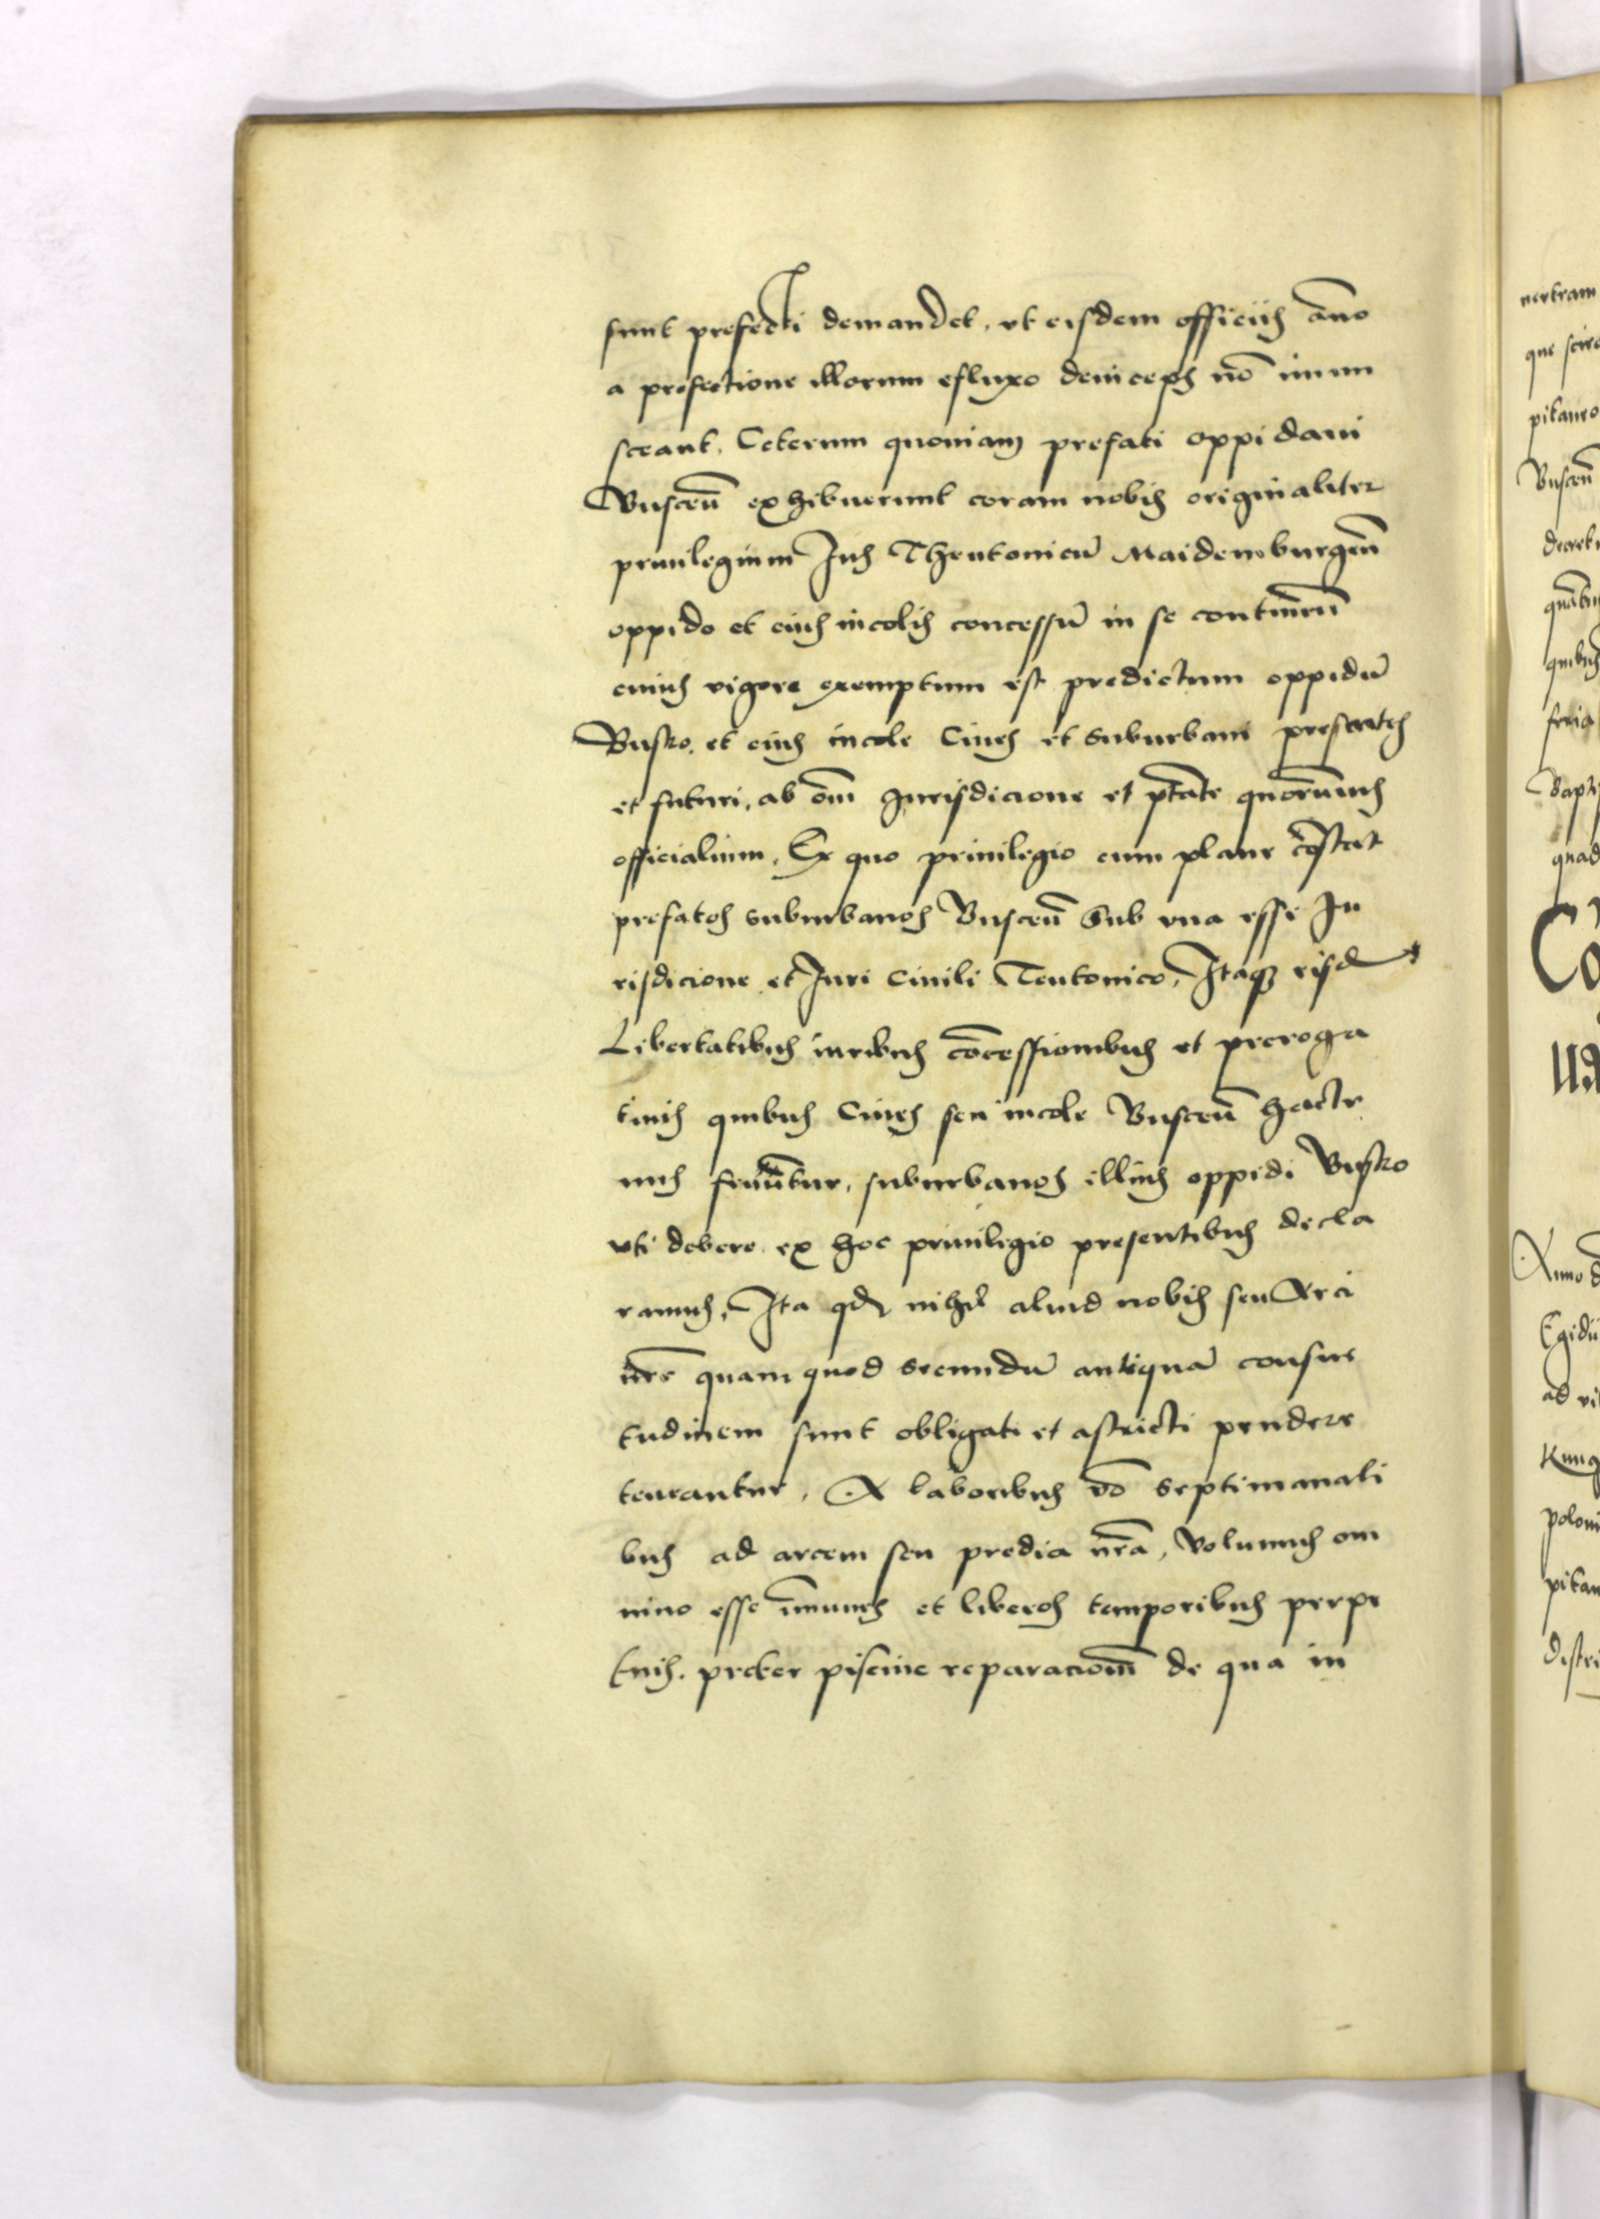 sunt prefecti demandet, vt eisdem officiis āno
a prefectione illorum efluxo deinceps nō inmi
sceant. Ceterum quoniam prefati oppidani
Busceñ exhibuerunt coram nobis originaliter
priuilegium Ius Theutonicū Maidemburgeñ
oppido et eius incolis concessū in se contineñ
cuius vigore exemptum est predictum oppidū
Busko. et eius incole Ciues et suburbani presentes
et futuri, ab om̄i Jurisdicione et ptāte quorūuis
officialium. Ex quo priuilegio cum plane cōstat
prefatos suburbanos Busceñ Sub vna esse Ju
risdicione et Juri Ciuili Teutonico, Itaq3 eisd
Libertatibus iuribus cōcessionibus et preroga
tiuis quibus Ciues seu incole Busceñ hacte
nus fruūtur, suburbanos illius oppidi Busko
vti debere ex hoc priuilegio presentibus decla
ramus, Ita qd nihil aliud nobis seu Arci
nr̄e quam quod secundū antiquā consue
tudinem sunt obligati et astricti pendere
teneantur. A laboribus vō septimanali
bus ad arcem seu predia nr̄a, volumus om
nino esse īmunes et liberos temporibus perpe
tuis. preter piscine reparacionē de qua in
nertram
que scire
pitaneo
Busceñ
decret
quātu
quibus
Bapti
quad
Anno d
Egidii
ad vi
poloni
pitan
Distri